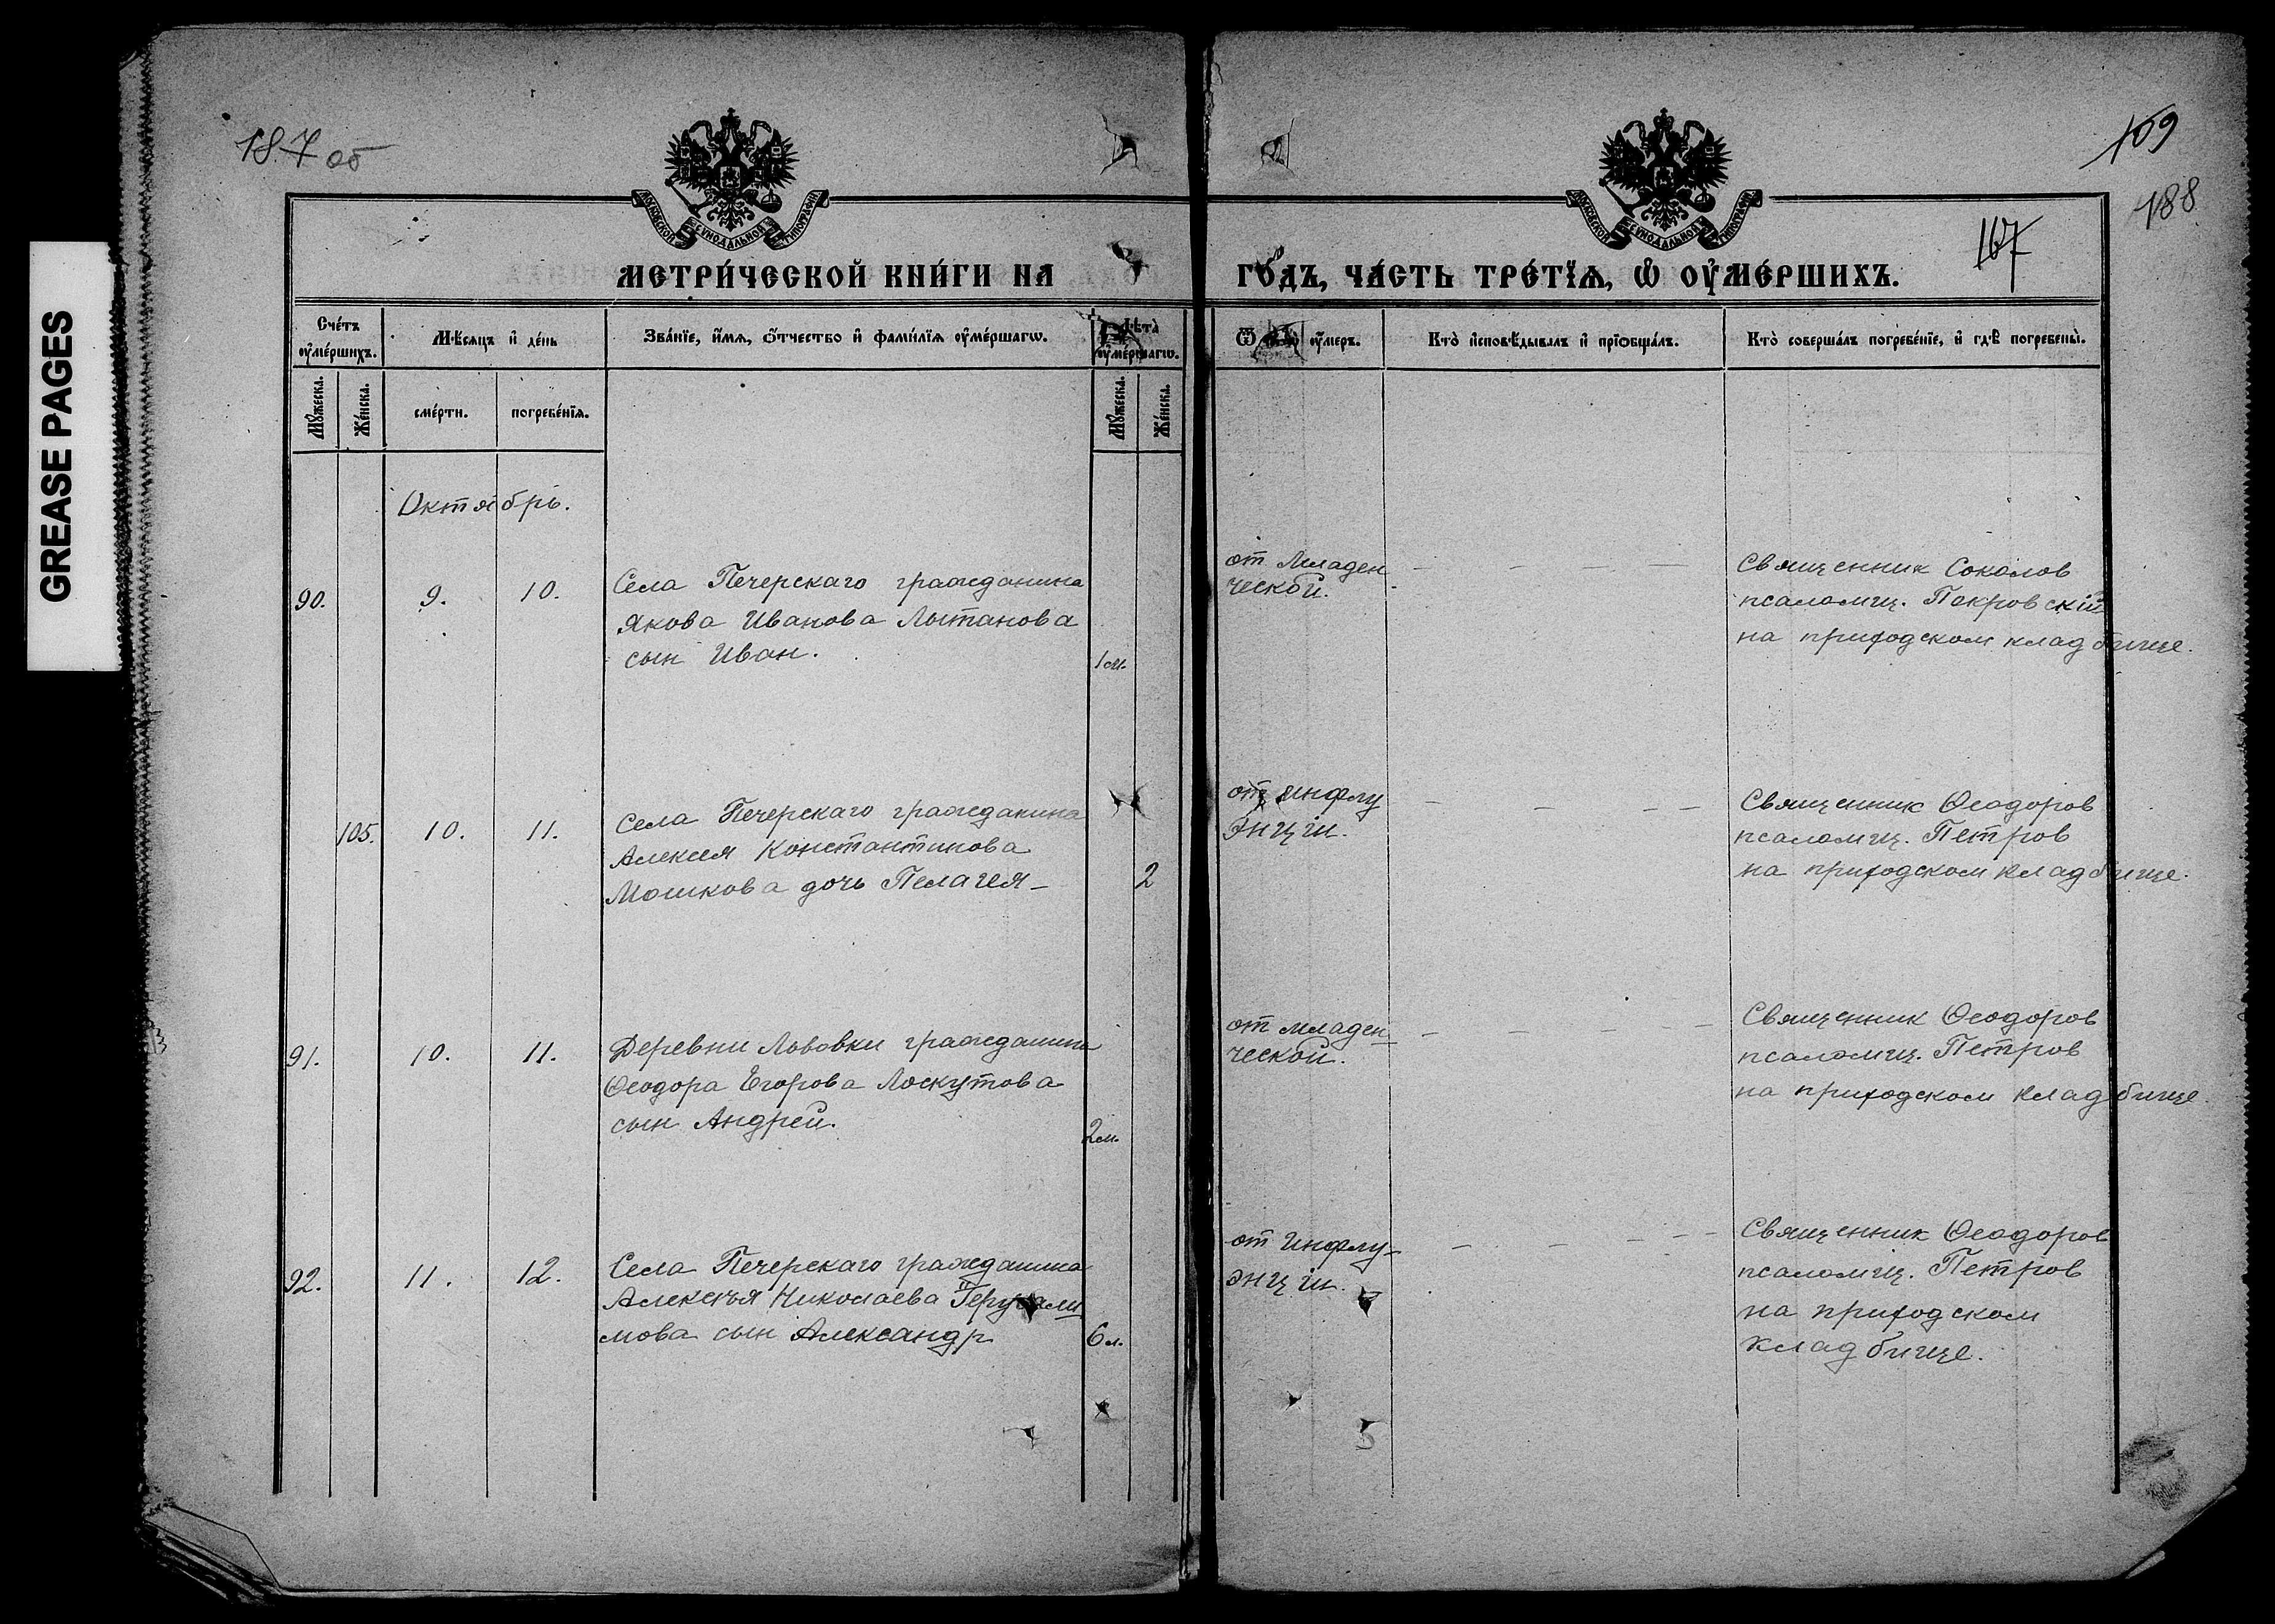 GREASE PAGES
187 об
109
188
167
МОСКОВСКОЙ СѴНОДАЛЬНОЙ ТИПОГРАФІИ
МОСКОВСКОЙ СѴНОДАЛЬНОЙ ТИПОГРАФІИ
МЕТРИ́ЧЕСКОЙ КНИ́ГИ НА
ГО́ДЪ, ЧА́СТЬ ТРЕ́ТІѦ, Ѡ҆ ОУ҆МЕ́РШИХЪ.
Сче́тъ оу҆ме́ршихъ.
Мѣ́сяцъ и҆ де́нь
Зва́нїе, и҆́мѧ, ѻ҆́тчество и҆ фамѝлїѧ оу҆ме́ршагѡ.
Лѣ́та оу҆ме́ршагѡ.
Ѿ оу҆́меръ.
Кто̀ и҆сповѣ́дывалъ и҆ прїѻбща́лъ.
Кто̀ соверша́лъ погребе́нїе, и҆ гдѣ̀ погребены̀.
Мꙋ́жеска.
Же́нска.
сме́рти.
погребе́нїѧ.
Мꙋ́жеска.
Же́нска.
Октябрь.
90.
9.
10.
Села Печерскаго гражданина
Якова Иванова Лытанова
сын Иван.
1 м.
от Младен
ческой.
Священник Соколов
псаломщ. Покровскій
на приходском кладбище.
105.
10.
11.
Села Печерскаго гражданина
Алексея Константинова
Мошкова дочь Пелагея
2
от инфлу
энціи.
Священник Ѳеодоров
псаломщ. Петров
на приходском кладбище.
91.
10.
11.
Деревни Львовки гражданина
Ѳеодора Егорова Лоскутова
сын Андрей.
2 м.
от младен
ческой.
Священник Ѳеодоров
псаломщ. Петров
на приходском кладбище.
92.
11.
12.
Села Печерскаго гражданина
Алексѣя Николаева Іерусали
мова сын Александр
6 л.
от Инфлу-
энціи.
Священник Ѳеодоров
псаломщ. Петров
на приходском
кладбище.